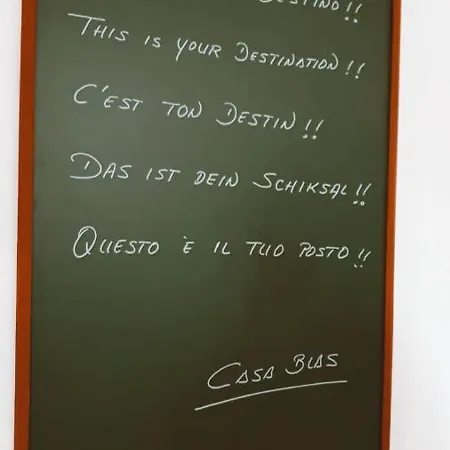 DESTINO!!
THIS IS YOUR DESTINATION!!
C'EST TON DESTIN!!
DAS IST DEIN SCHIKSAL!!
QUESTO È IL TUO POSTO!!
CASA BLAS